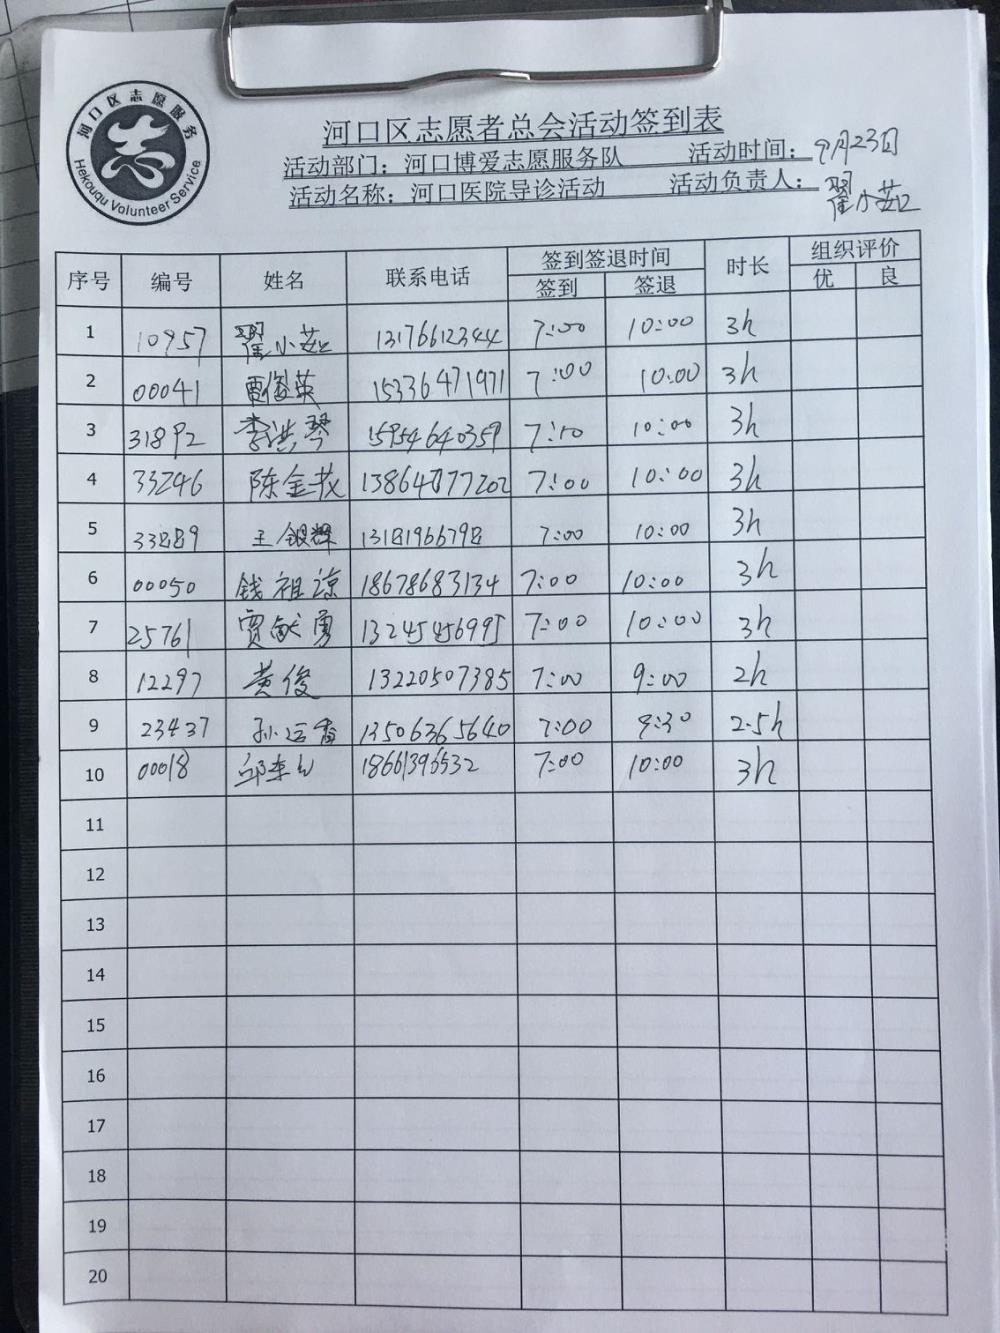 河口区志愿服务
志
Hekouqu Volunteer Service
河口区志愿者总会活动签到表
活动部门：河口博爱志愿服务队 活动时间：9月23日
活动名称：河口医院导诊活动 活动负责人：翟小茹
序号 编号 姓名 联系电话 签到签退时间 时长 组织评价
签到 签退 优 良
1 10957 翟小茹 13176612344 7:00 10:00 3h
2 00041 贾俊英 15336471971 7:00 10:00 3h
3 31892 李洪琴 15954640359 7:10 10:00 3h
4 33246 陈金 7:00 10:00 3h
5 王银辉 7:00 10:00 3h
6 00050 钱祖谅 18678683134 7:00 10:00 3h
7 25761 贾献勇 13245456995 7:00 10:00 3h
8 12297 黄俊 13220507385 7:00 9:00 2h
9 23437 孙运香 13506365640 7:00 9:30 2.5h
10 00018 邱 18661396532 7:00 10:00 3h
11
12
13
14
15
16
17
18
19
20